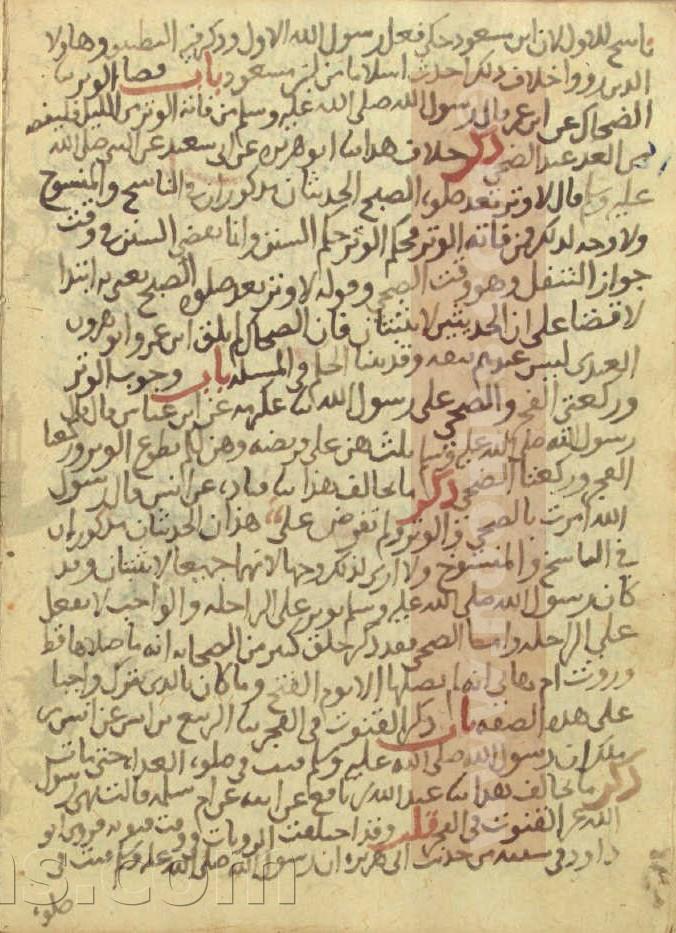 ناسخ للاول لان ابن مسعود حكى فعل رسول الله الاول وذكر فيه التطبيق وهاولا
الذين رووا خلاف ذلك احدث اسلاما من ابن مسعود باب قضا الوتر نا
الضحاك عن ابن عمر قال قال رسول الله صلى الله عليه وسلم من فاته الوتر من الليل فليقضه
من الغد عند الضحى ذكر خلاف هذا نا ابو هريره عن ابى سعيد عن النبى صلى الله
عليه وسلم قال لا وتر بعد صلوه الصبح الحديثان مذكوران فى الناسخ والمنسوخ
ولا وجه لذلك فمن فاته الوتر فحكم الوتر حكم السنن وانا نقضى السنن فى وقت
جواز التنفل وهو وقت الضحى وقوله لا وتر بعد صلوه الصبح يعنى به ابتدا
لا قضا على ان الحديثين لا يثبتان فان الضحاك لم يلق ابن عمر وابو هرون
العبدى ليس عندهم بثقه وقد بينا الحكم فى المسله باب وجوب الوتر
وركعتى الفجر والضحى على رسول الله نا عكرمه عن ابن عباس قال قال
رسول الله صلى الله عليه وسلم ثلث هن على فريضه وهن لكم تطوع الوتر وركعتا
الفجر وركعتا الضحى ذكر ما يخالف هذا نا قتاده عن انس قال رسول
الله امرت بالضحى والوتر ولم تفرض على هذان الحديثان مذكوران
فى الناسخ والمنسوخ ولا ارى لذلك وجها لانهما جميعا لا يثبتان وقد
كان رسول الله صلى الله عليه وسلم يوتر على الراحله والواجب لا يفعل
على الراحله واما الضحى فقد ذكر خلق كثير من الصحابه انه ما صلاها قط
وروت ام هانى انه لم يصلها الا يوم الفتح وما كان بالذى يترك واجبا
على هذه الصفه باب ذكر القنوت فى الفجر نا الربيع بن انس عن انس بن
ملك ان رسول الله صلى الله عليه وسلم قنت فى صلوه الغداه حتى مات
ذكر ما يخالف هذا نا عبد الله بن نافع عن ابيه عن ام سلمه قالت نهى رسول
الله عن القنوت فى الفجر قلت وقد اختلفت الروايات ووقت قنوته فروى ابو
داود فى سننه من حديث ابى هريره ان رسول الله صلى الله عليه وسلم قنت فى
صلوه